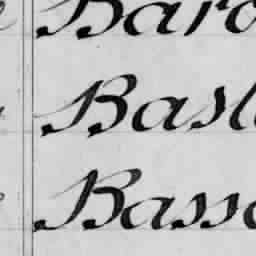 Baro
Basl
Basso